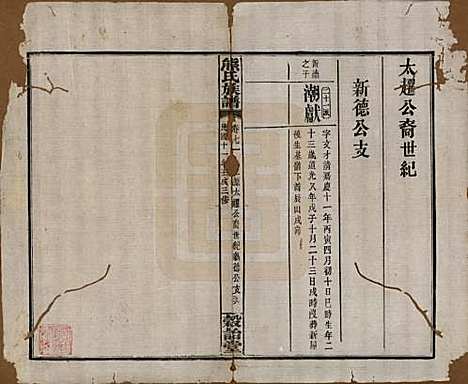 太耀公裔世紀
新德公支
新德
之子
二十一派
潮獻
字文才清嘉慶十一年丙寅四月初十日巳時生年二
十三歲道光八年戊子十月二十三日戌時歿葬新屋
後生基嶺下酉辰山戌向
熊氏族譜
卷七
太耀公裔世紀新德公支
穀詒堂